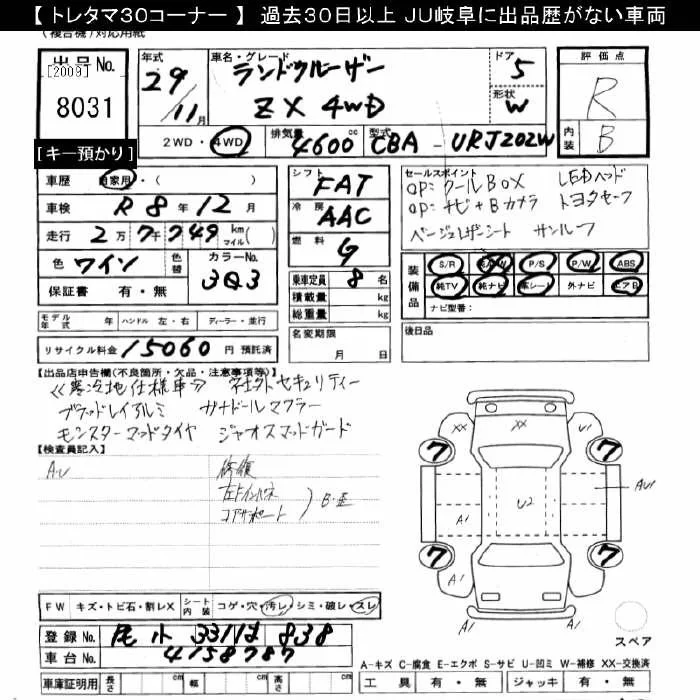 【 トレタマ30コーナー 】 過去30日以上 JU岐阜に出品歴がない車両
(複合機)対応用紙
出品No. [2009] 8031
[キー預かり]
年式 29年 11月
車名・グレード ランドクルーザー ZX 4WD
ドア 5
形状 W
評価点 R
内装 B
2WD・4WD 排気量 4600cc 型式 CBA - URJ202W
車歴 自家用・( )
車検 R8年 12月
走行 2万 7千 749 km マイル( )
色 ワイン 色替 カラーNo. 3Q3
保証書 有・無
シフト FAT
冷房 AAC
燃料 G
乗車定員 8名
積載量 kg
総重量 kg
セールスポイント
OP:クールBOX LEDヘッド
OP:ナビ+Bカメラ トヨタセーフ
ベージュレザーシート サンルーフ
装備品 S/R 純A/W P/S P/W ABS
純TV 純ナビ 革シート 外ナビ エアB
ナビ型番:
モデル年式 年 ハンドル 左・右 ディーラー・並行
名変期限 月 日
後日品
リサイクル料金 15060 円 預託済
【出品店申告欄(不良箇所・欠品・注意事項等)】
≪寒冷地仕様車≫ 社外セキュリティー
ブラッドレイアルミ ガナドールマフラー
モンスターマッドタイヤ ジャオスマッドガード
【検査員記入】
A・U 修復
左トインパネ
コアサポート
B・E
7 XX U1 7
A1 U2 AU1
7 A1 A1 7
A1
スペア
FW キズ・トビ石・割レX シート内装 コゲ・穴・汚レ・シミ・破レ・スレ
登録No. 尾小 331 は 838
車台No. 4158787
車庫証明用 長さ cm 幅 cm 高さ cm
A-キズ C-腐食 E-エクボ S-サビ U-凹ミ W-補修 XX-交換済
工具 有・無 ジャッキ 有・無